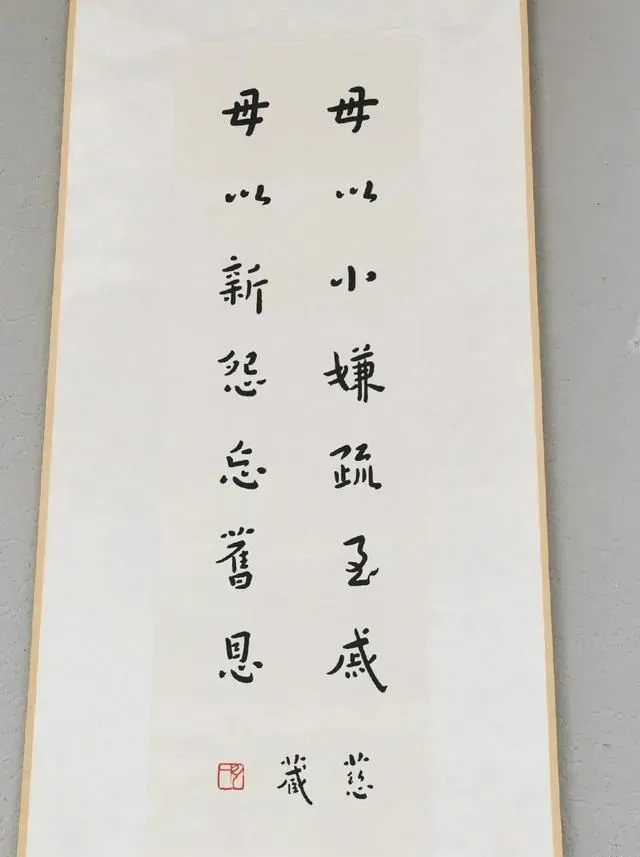 毋以小嫌疏至戚
毋以新怨忘舊恩
慈
藏